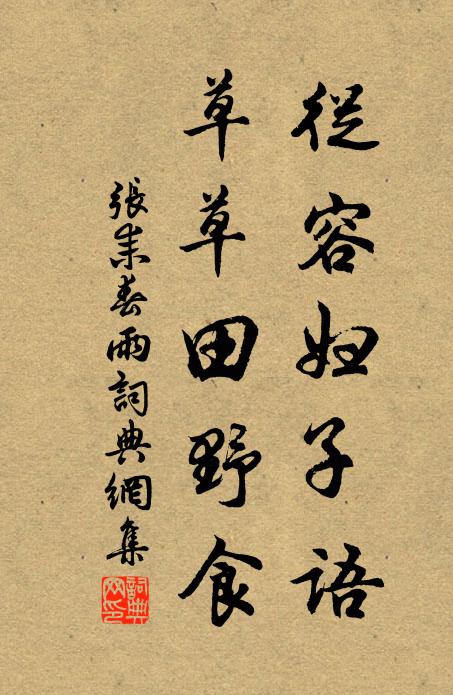 從容婦子語
草草田野食
張耒春雨詞典網集
詞典网印